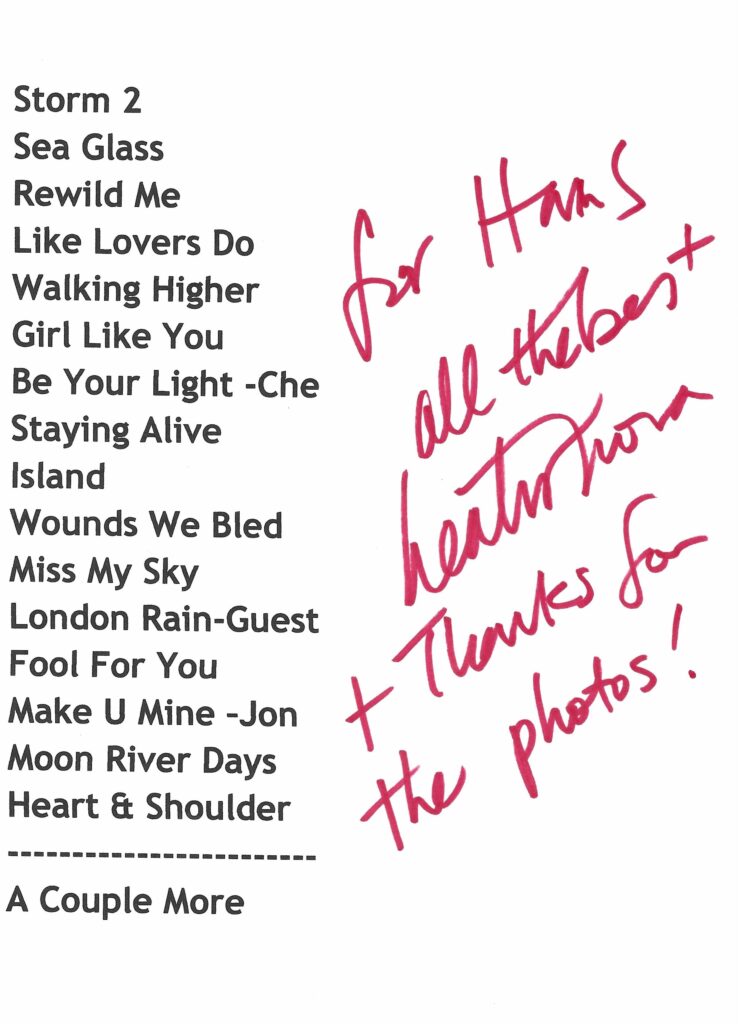 Storm 2
Sea Glass
Rewild Me
Like Lovers Do
Walking Higher
Girl Like You
Be Your Light -Che
Staying Alive
Island
Wounds We Bled
Miss My Sky
London Rain-Guest
Fool For You
Make U Mine –Jon
Moon River Days
Heart & Shoulder
------------------------
A Couple More
for Hans
all the best
heather nova
+ Thanks for
the photos!